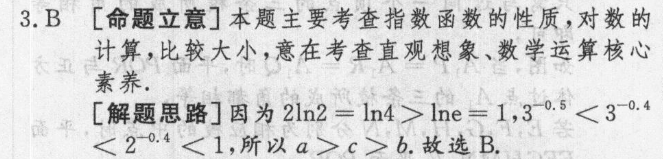 3. B [命题立意]本题主要考查指数函数的性质,对数的
计算,比较大小,意在考查直观想象、数学运算核心
素养.
[解题思路]因为 2ln2=ln4>lne=1,3^{-0.5}<3^{-0.4}
<2^{-0.4}<1,所以 a>c>b. 故选 B.